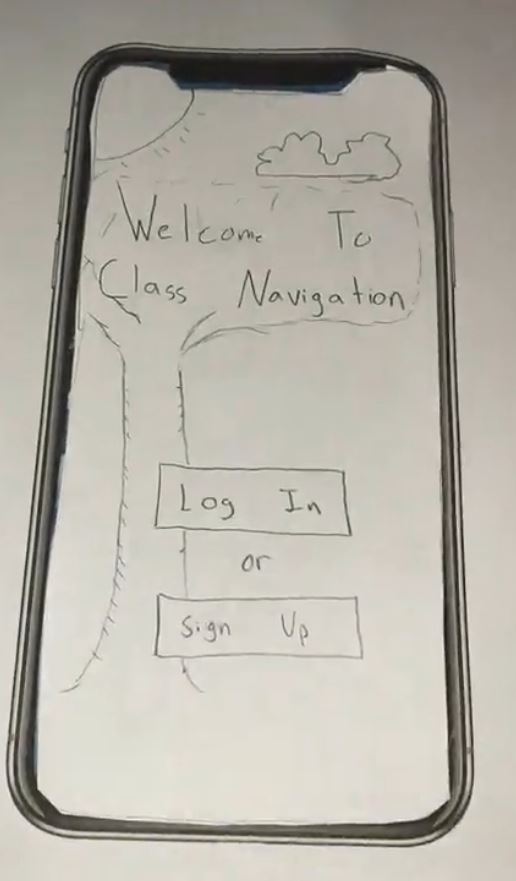 Welcome To
Class Navigation
Log In
or
Sign Up